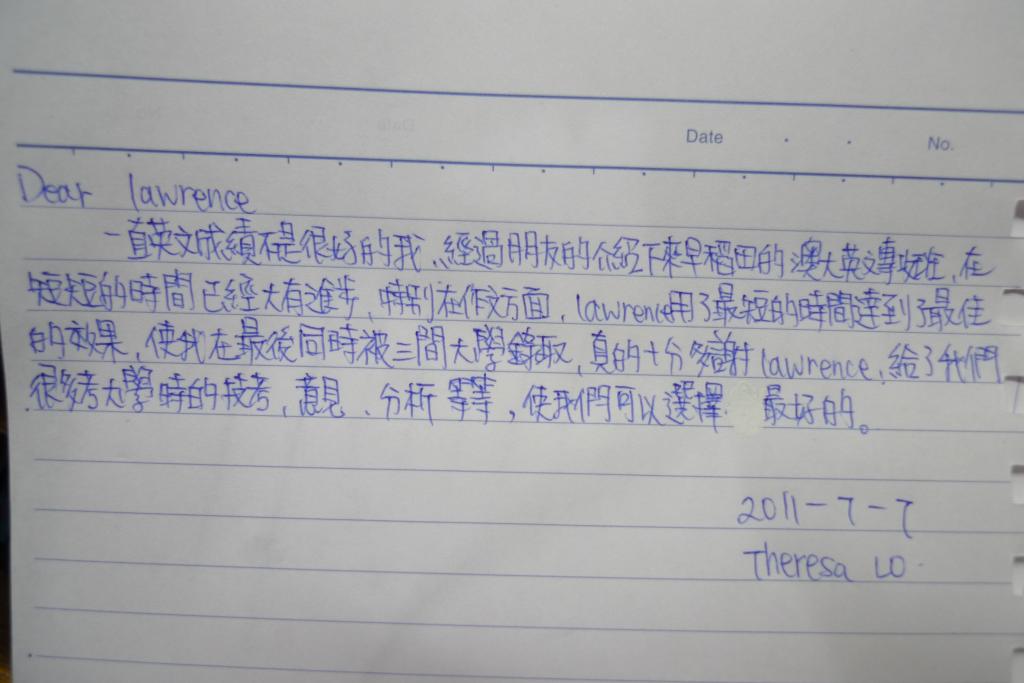 Date . . No.
Dear lawrence
一直英文成績不是很好的我、經過朋友的介紹下來早稻田的澳大英文專班,在
短短的時間已經大有進步,特別在作文方面,lawrence用了最短的時間達到了最佳
的效果,使我在最後同時被三間大學錄取,真的十分多謝lawrence,給了我們
很多考大學時的技考,意見、分析等等,使我們可以選擇 最好的。
2011-7-7
Theresa LO